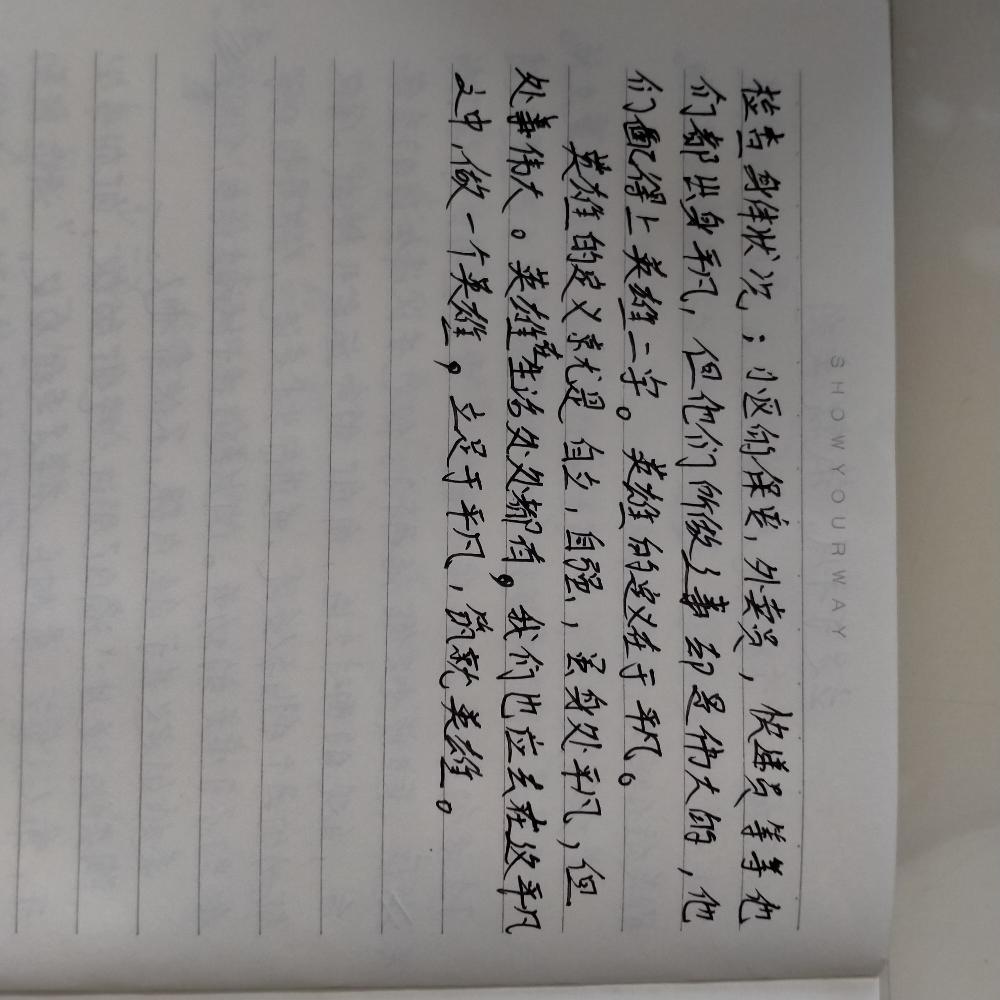 SHOWYOURWAY
检查身体状况；小区的保安，外卖员，快递员等等他
们都出身平凡，但他们所做之事却是伟大的，他
们配得上英雄二字。英雄的定义在于平凡。
英雄的定义就是自立，自强，虽身处平凡，但
处事伟大。英雄在生活处处都有，我们也应去在这平凡
之中，做一个英雄，立足于平凡，筑就英雄。